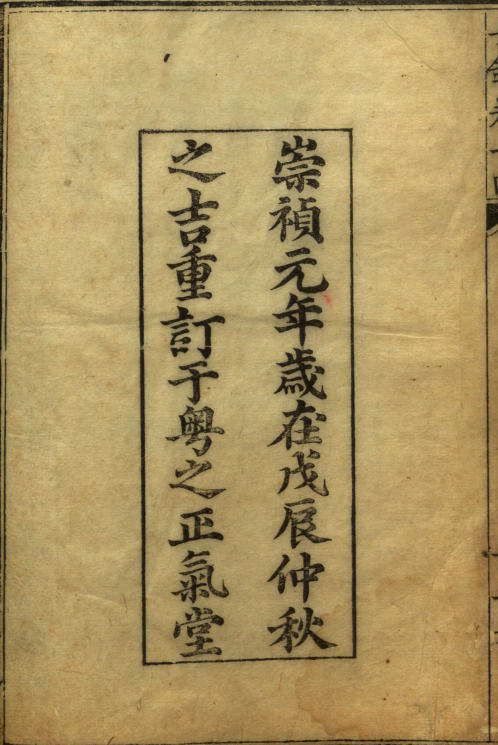 崇禎元年歲在戊辰仲秋
之吉重訂于粵之正氣堂